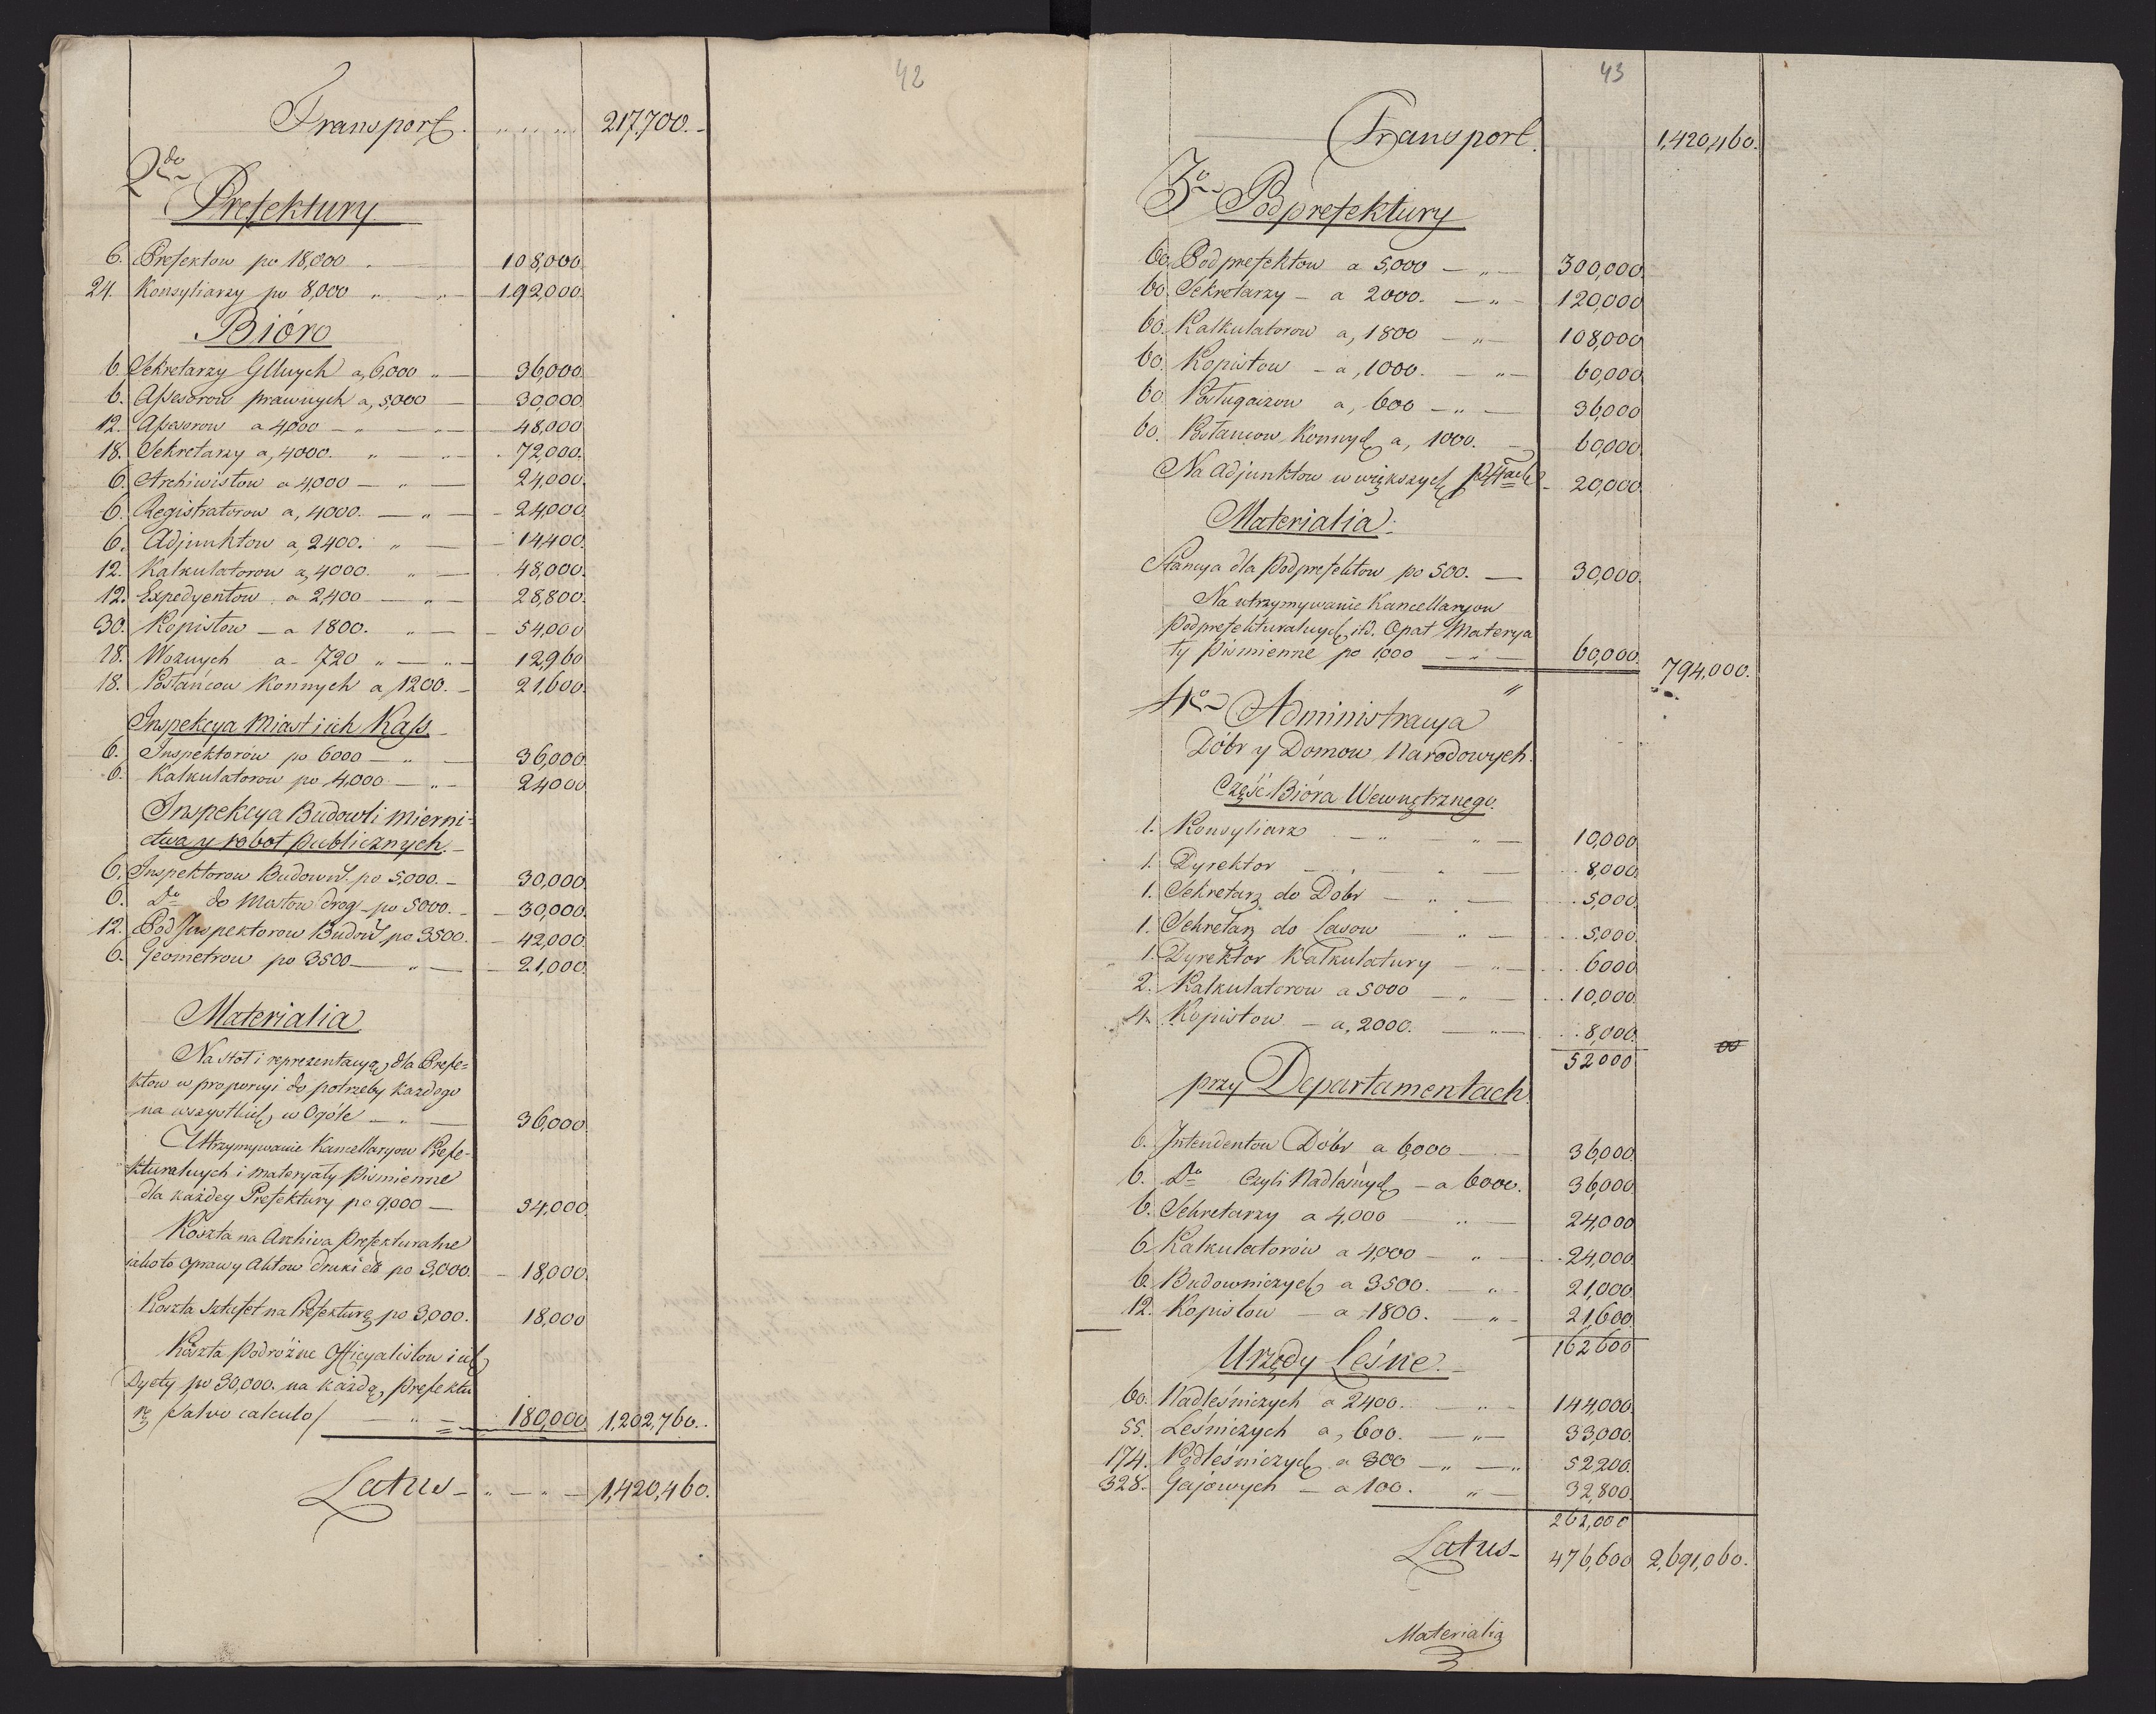 42
Transport. 217,700.
2do
Prefektury
6. Prefektow po 18,000 108,000
24. Konsyliarzy po 8,000 192,000
Bióro
6. Sekretarzy Gllnych a, 6,000 36,000
6. Assesorow prawnych a, 5,000 30,000
12. Assesorow a 4,000 48,000
18. Sekretarzy a, 4000. 72,000.
6. Archiwistow a 4,000 24,000
6. Registratorow a, 4000. 24,000
6. Adjunktow a, 2400. 14400.
12. Kalkulatorow a, 4000. 48,000.
12. Expedyentow a 2,400 28,800
30. Kopistow a 1800. 54,000
18. Woznych a 720 12,960
18. Posłańcow Konnych a 1200. 21,600
Inspekcya Miast i ich Kass.
6. Inspektorów po 6000 36,000
6. Kalkulatorow po 4,000 24000
Inspekcya Budowli Mierni-
ctwa y robot publicznych.
6. Inspektorow Budown. po 5,000. 30,000
6. Do do Mostow drog po 5000. 30,000.
12. Pod Inspektorow Budow po 3500. 42,000
6. Geometrow po 3500 21,000
Materialia
Na stoł i reprezentacyą dla Prefe-
ktow w proporcyi do potrzeby każdego
na wszystkich w Ogóle 36,000
Utrzymywanie Kancellaryow Prefe-
kturalnych i materyały piśmienne
dla każdey Prefektury po 9,000 54,000
Koszta na Archiva prefekturalne
iako to oprawy Aktow druki etc po 3,000. 18,000
Koszta Sztafet na Prefekturę po 3,000. 18,000
Koszta podróżne Officyalistow i ich
Dyety po 30,000. na każdą prefektu
rę /salvo calculo/ 180,000 1,202,760.
Latus 1,420,460.
43
Transport. 1,420,460.
3o
Podprefektury
60. Podprefektow a 5,000 300,000
60. Sekretarzy a 2000. 120,000
60. Kalkulatorow a, 1800 108,000
60. Kopistow a, 1000. 60,000
60. Posługaczow a, 600 36,000
60. Posłancow Konnych a, 1000. 60,000
Na Adjunktow w większych 20,000
Materialia.
Stancya dla Podprefektow po 500. 30,000
Na utrzymywanie Kancellaryow
podprefekturalnych itd. Opał Materya
ły piśmienne po 1,000 60,000 794,000.
4o Administracya
Dóbr y Domow Narodowych.
Część Bióra Wewnętrznego.
1. Konsyliarz 10,000
1. Dyrektor 8,000
1. Sekretarz do Dobr 5,000
1. Sekretarz do Lasow 5,000
1. Dyrektor Kalkulatury 6000
2. Kalkulatorow a 5000 10,000
4. Kopistow a, 2000. 8,000
52000
przy Departamentach.
6. Intendentow Dóbr a 6,000 36,000
6. Do czyli Nadleśnych a 6000. 36,000
6. Sekretarzy a 4,000 24,000
6. Kalkulatorów a 4,000 24,000
6. Budowniczych a 3500. 21,000
12. Kopistow a 1800. 21,600
162600
Urzędy Leśne.
60. Nadleśniczych a 2400. 144,000
55. Leśniczych a, 600. 33,000
174. Podleśniczych a 300 52,200
328. Gajowych a 100. 32,800
262,000
Latus 476,600 2,691,060.
Materialia